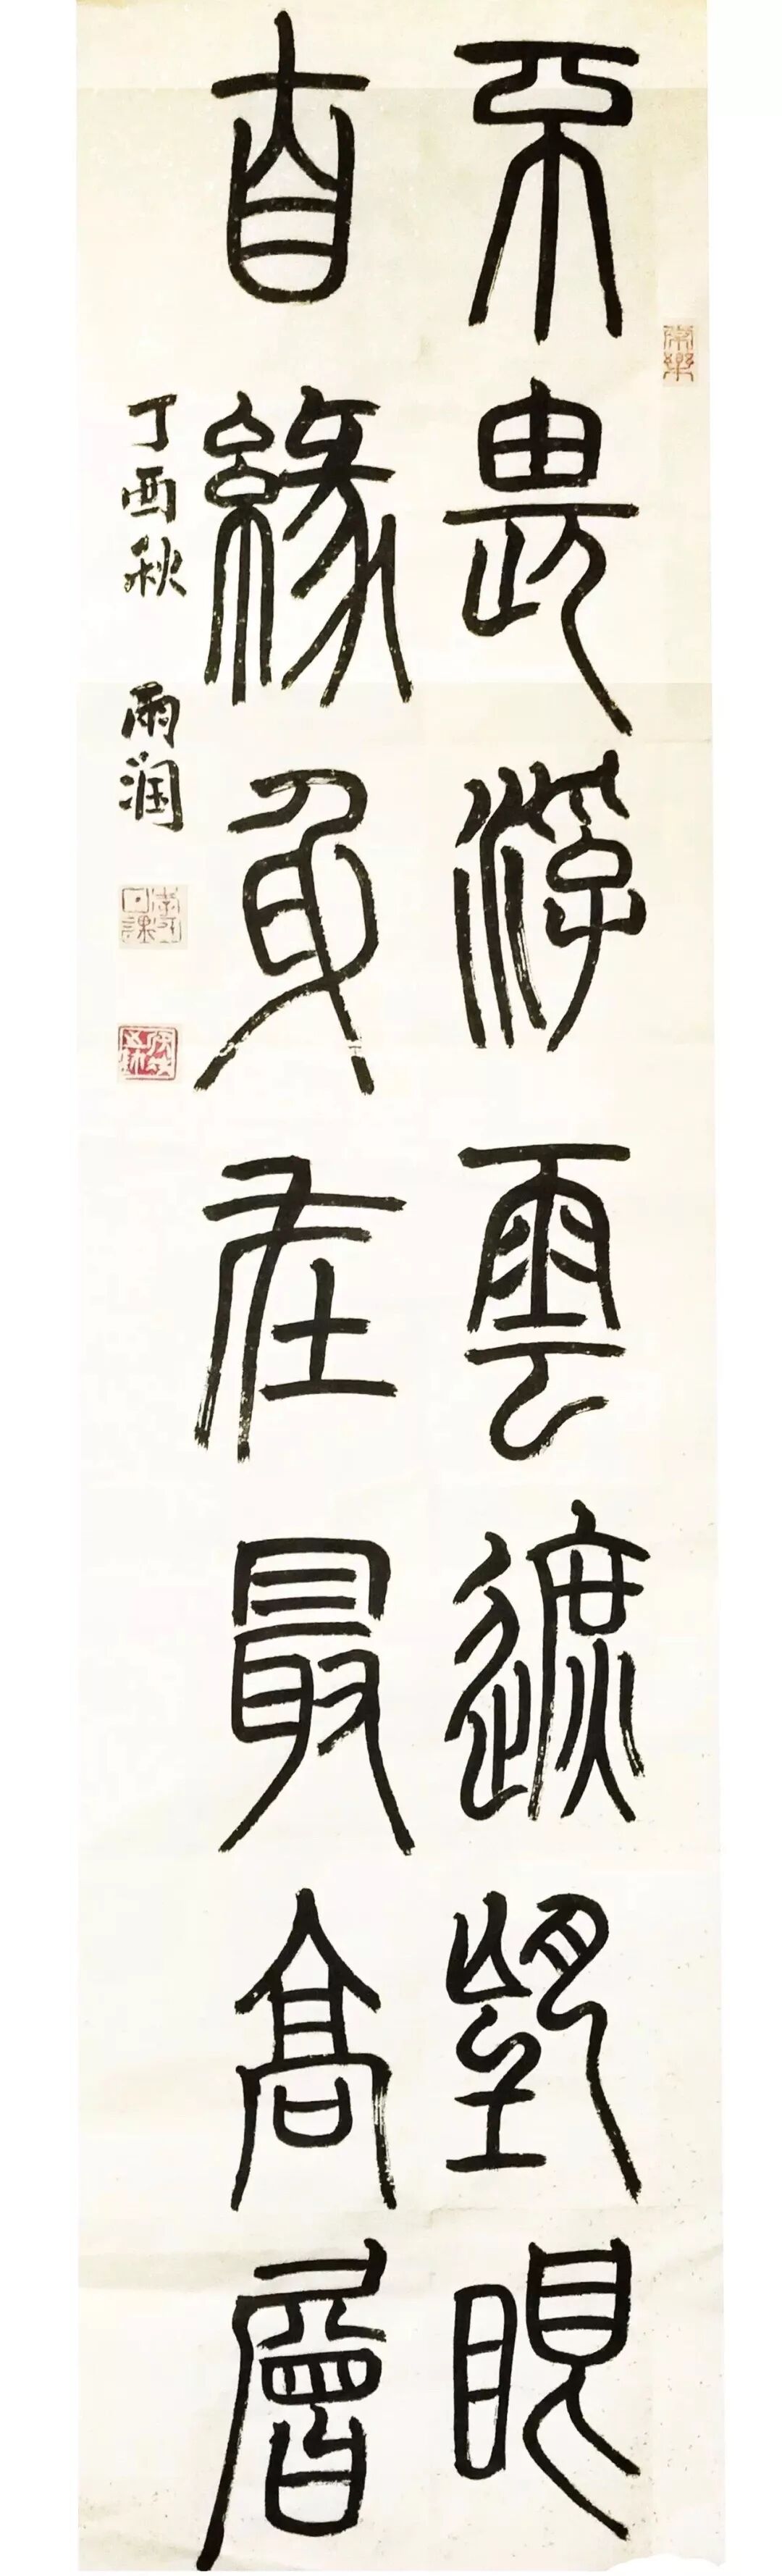 常樂
不畏浮雲遮望眼
自緣身在最高層
丁酉秋 雨润